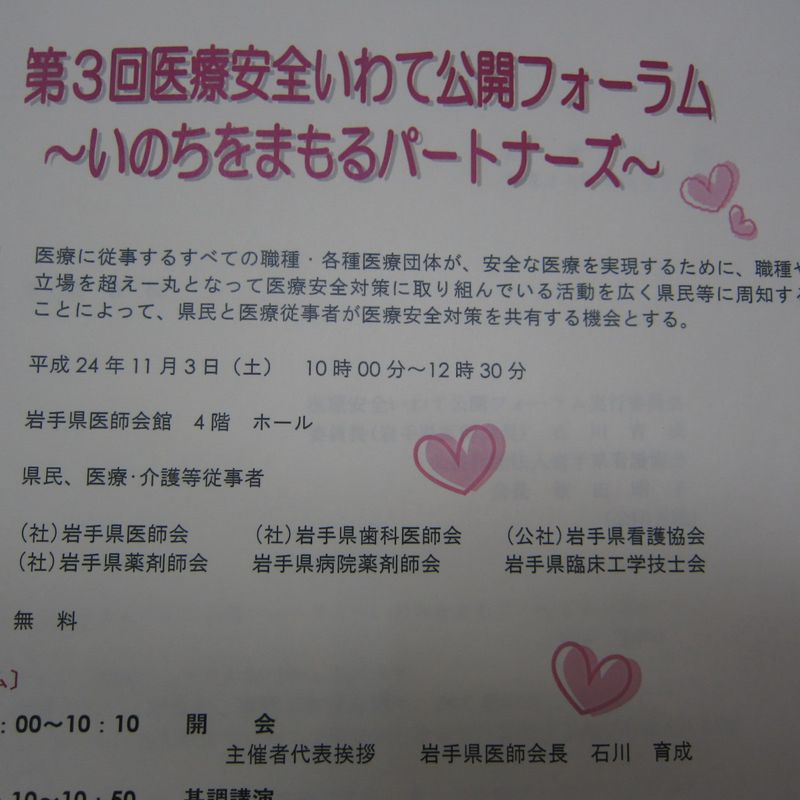 第3回医療安全いわて公開フォーラム
～いのちをまもるパートナーズ～
医療に従事するすべての職種・各種医療団体が、安全な医療を実現するために、職種や
立場を超え一丸となって医療安全対策に取り組んでいる活動を広く県民等に周知する
ことによって、県民と医療従事者が医療安全対策を共有する機会とする。
平成24年11月3日（土） 10時00分～12時30分
岩手県医師会館 4階 ホール
県民、医療・介護等従事者
（社）岩手県医師会 （社）岩手県歯科医師会 （公社）岩手県看護協会
（社）岩手県薬剤師会 岩手県病院薬剤師会 岩手県臨床工学技士会
無 料
ム］
：00～10：10 開 会
主催者代表挨拶 岩手県医師会長 石川 育成
10～10：50 基調講演